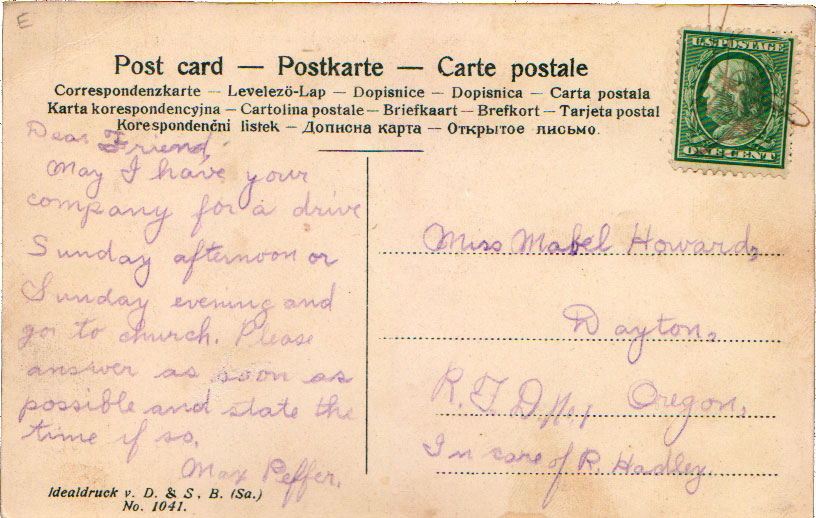 E
U.S. POSTAGE
ONE CENT
Post card — Postkarte — Carte postale
Correspondenzkarte — Levelező-Lap — Dopisnice — Dopisnica — Carta postala
Karta korespondencyjna — Cartolina postale — Briefkaart — Brefkort — Tarjeta postal
Korespondenčni listek — Дописна карта — Открытое письмо.
Dear Friend,
May I have your
company for a drive
Sunday afternoon or
Sunday evening and
go to church. Please
answer as soon as
possible and state the
time if so.
Max Peffer.
Miss Mabel Howard,
Dayton,
R. F. D. No. 1 Oregon,
In care of R. Hadley.
Idealdruck v. D. & S. B. (Sa.)
No. 1041.